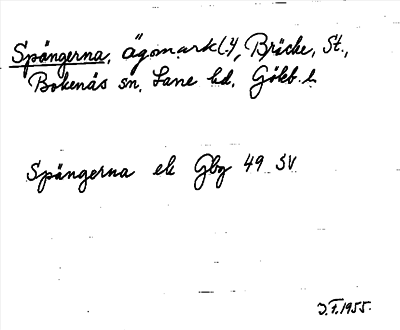 Spångerna, ägomark(.), Bräcke, St.,
Bokenäs sn, Lane hd. Göteb. l.
Spångerna ek Gbg 49 SV
J.F. 1955.